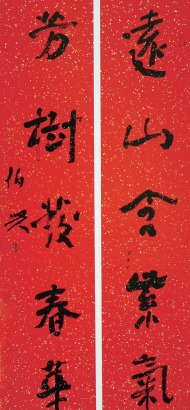 遠山含紫氣
芳樹發春華
伯興